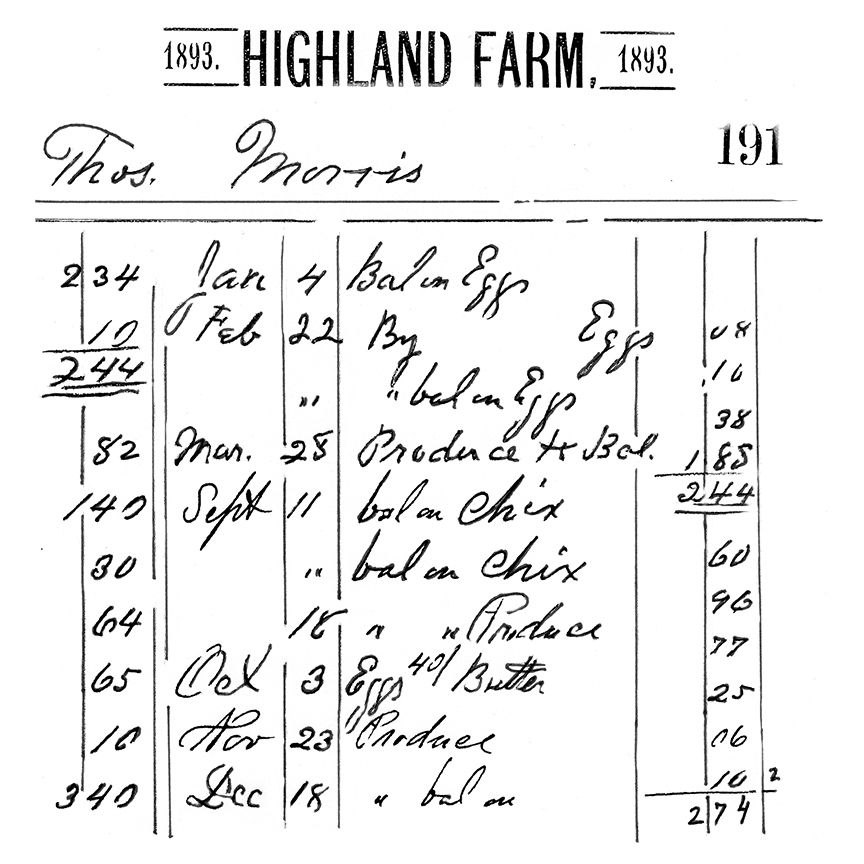 1893. HIGHLAND FARM, 1893.
Thos. Morris 191
2 34 Jan 4 Bal on Eggs
10 Feb 22 By Eggs 08
2 44 .10
" " bal on Eggs 38
82 Mar. 28 Produce to Bal. 1 88
1 40 Sept 11 bal on Chix 2 44
30 " bal on Chix 60
64 18 " " Produce 96
77
65 Oct 3 Eggs 40/ Butter 25
10 Nov 23 " Produce 06
3 40 Dec 18 " bal on 10 2
2 74